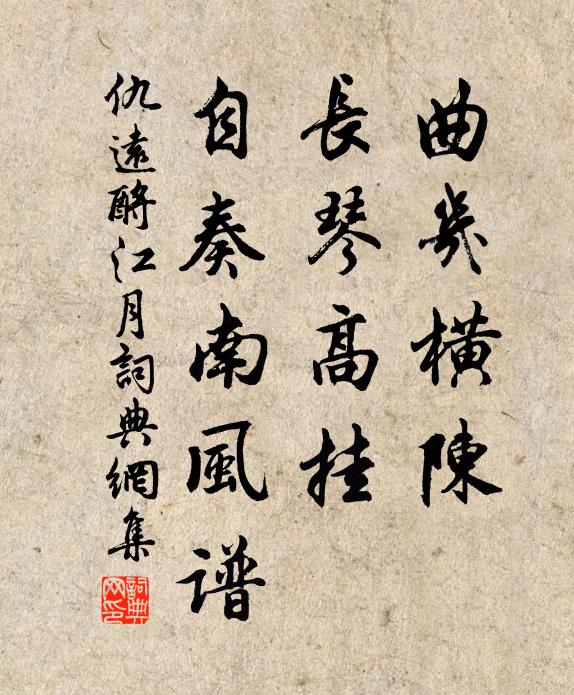 曲幾橫陳
長琴高挂
自奏南風譜
仇遠酹江月詞典網集